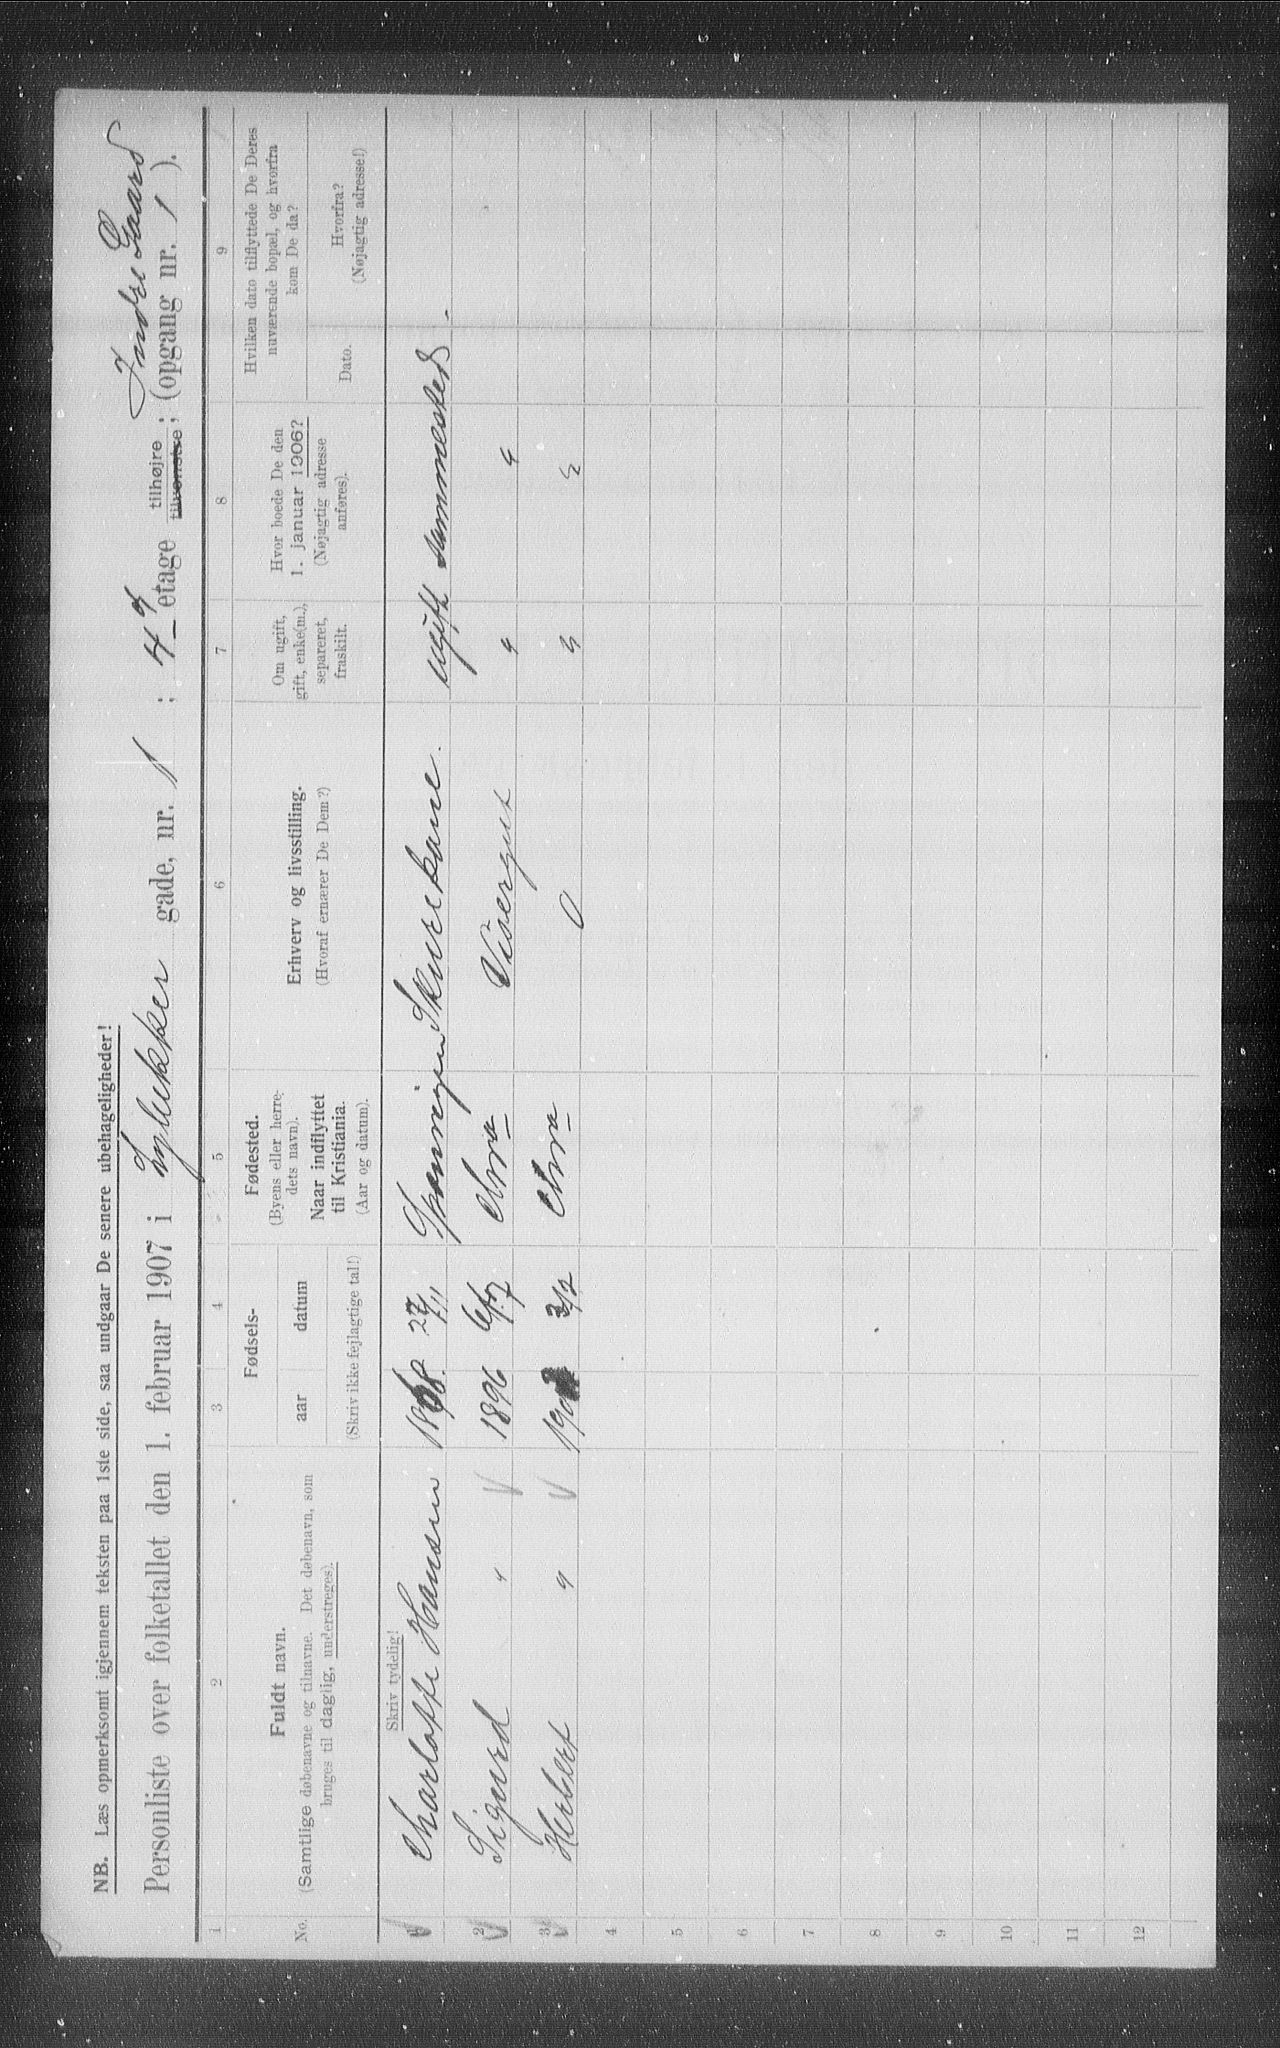 NB. Læs opmerksomt igjennem teksten paa 1ste side, saa undgaar De senere ubehageligheder!
Indre Gaard
Personliste over folketallet den 1. februar 1907 i Lykker gade, nr. 1 ; 4 etage tilhøjre tilvenstre ; (opgang nr. 1 ).
1 2 3 4 5 6 7 8 9
No.
Fuldt navn.
(Samtlige døbenavne og tilnavne. Det døbenavn, som
bruges til daglig, understreges).
Fødsels-
aar datum
(Skriv ikke fejlagtige tal!)
Fødested.
(Byens eller herre-
dets navn).
Naar indflyttet
til Kristiania.
(Aar og datum).
Erhverv og livsstilling.
(Hvoraf ernærer De Dem?)
Om ugift,
gift, enke(m.),
separeret,
fraskilt.
Hvor boede De den
1. januar 1906?
(Nøjagtig adresse
anføres).
Hvilken dato tilflyttede De Deres
nuværende bopæl, og hvorfra
kom De da?
Dato.
Hvorfra?
(Nøjagtig adresse!)
Skriv tydelig!
1 Charlotte Hansen 1868 27/11 Skurekone. ugift sammested.
2 Sigurd " 1896 6/7 Chra Visergut " "
3 Herbert " 3/2 Chra 0 " "
4
5
6
7
8
9
10
11
12